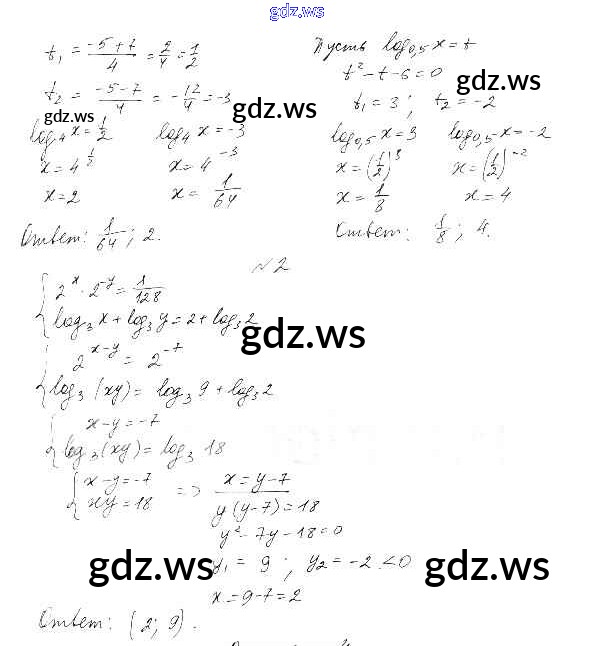 gdz.ws
t₁ = (-5+7)/4 = 2/4 = 1/2
t₂ = (-5-7)/4 = -12/4 = -3
gdz.ws
log₄ x = 1/2   log₄ x = -3
x = 4^(1/2)   x = 4^(-3)
x = 2   x = 1/64
Ответ: 1/64; 2.
Пусть log₀,₅ x = t
t² - t - 6 = 0
gdz.ws
t₁ = 3; t₂ = -2
log₀,₅ x = 3   log₀,₅ x = -2
gdz.ws
x = (1/2)³   x = (1/2)⁻²
x = 1/8   x = 4
Ответ: 1/8; 4.
№2
{ 2^x · 2^(-y) = 1/128
log₃ x + log₃ y = 2 + log₃ 2
gdz.ws
{ 2^(x-y) = 2^(-7)
log₃ (xy) = log₃ 9 + log₃ 2
{ x - y = -7
log₃ (xy) = log₃ 18
{ x - y = -7   =>   x = y - 7
xy = 18   y(y-7) = 18
y² - 7y - 18 = 0
gdz.ws   y₁ = 9; y₂ = -2 < 0   gdz.ws
x = 9 - 7 = 2
Ответ: (2; 9).